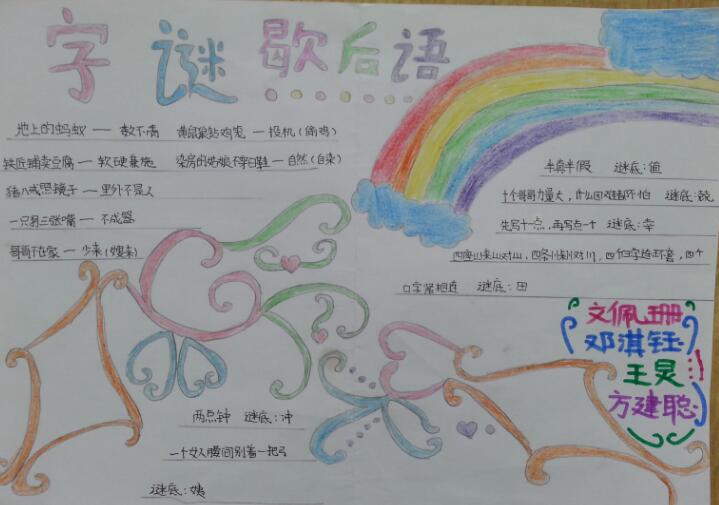 字谜歇后语
地上的蚂蚁 — 数不清
黄鼠狼钻鸡笼 — 投机(偷鸡)
铁匠铺卖豆腐 — 软硬兼施
染房的姑娘不穿白鞋 — 自然(自染)
猪八戒照镜子 — 里外不是人
一只
三张嘴 — 不成器
哥哥不在家 — 少来(嫂来)
半真半假 谜底:值
十个哥哥力量大,什么困难都不怕 谜底:兢
先写十一点,再写点一个 谜底:幸
四座山来山对山,四条川来川对川,四个口字连环套,四个
口字紧相连 谜底:田
文佩珊
邓淇钰
王灵
方建聪
两点钟 谜底:冲
一个女人腰间别着一把弓
谜底:姨